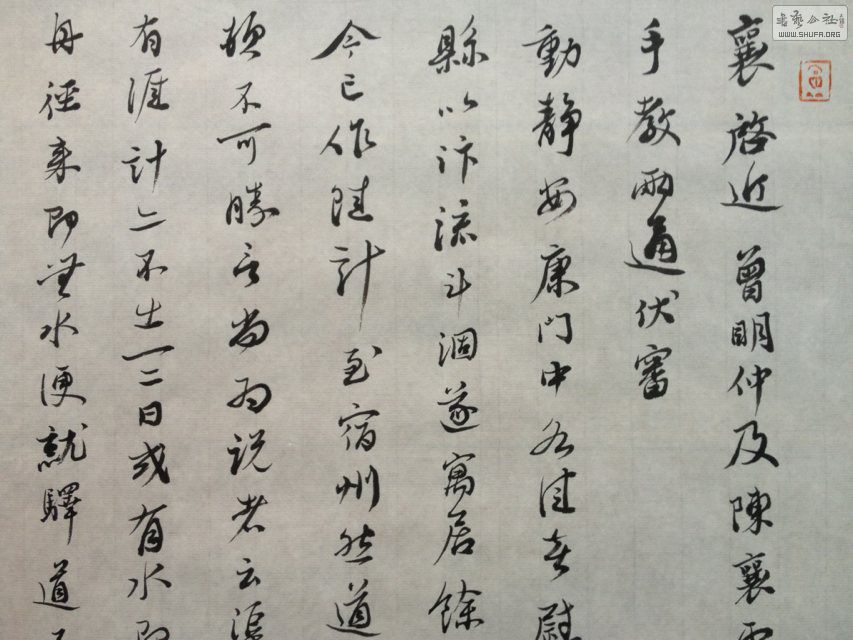 襄啓近曾明仲及陳襄處
手教兩通伏審
動靜安康門中各佳喜慰
縣以汴流斗涸遂寓居餘
今已作陸計至宿州然道
頓不可勝言尚为說者云渠
有涯計亦不出一二日或有水即
舟徑来即無水便就驛道
書藝公社
WWW.SHUFA.ORG